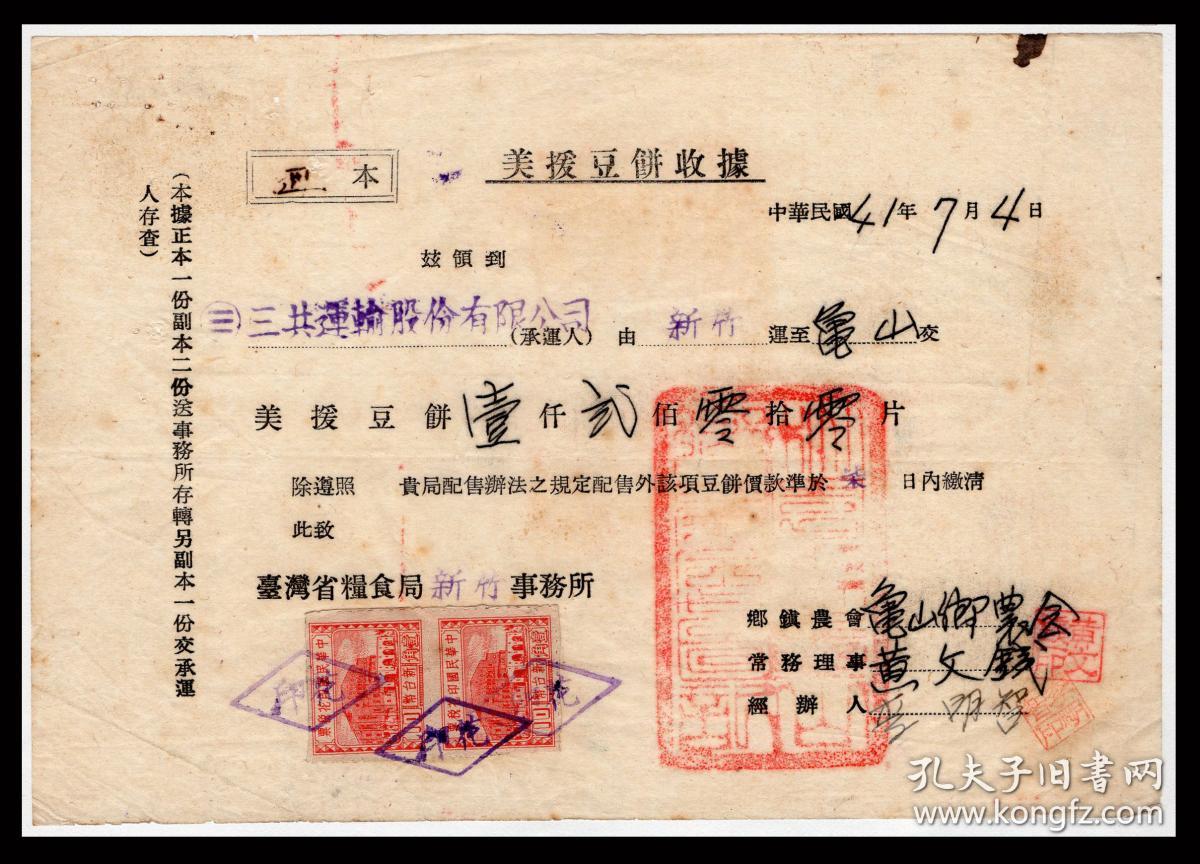 美援豆餅收據
正本
中華民國41年7月4日
玆領到
三共運輸股份有限公司(承運人)由新竹運至龜山交
美援豆餅壹仟弍佰零拾零片
除遵照 貴局配售辦法之規定配售外該項豆餅價款準於柒日內繳清
此致
臺灣省糧食局新竹事務所
鄉鎮農會龜山鄉農會
常務理事黃文
經辦人 明智
(本據正本一份副本二份送事務所存轉另副本一份交承運
人存查)
中華民國印花稅票
壹角新台幣
中華民國印花稅票
壹角新台幣
印花
印花
花
孔夫子旧书网
www.kongfz.com